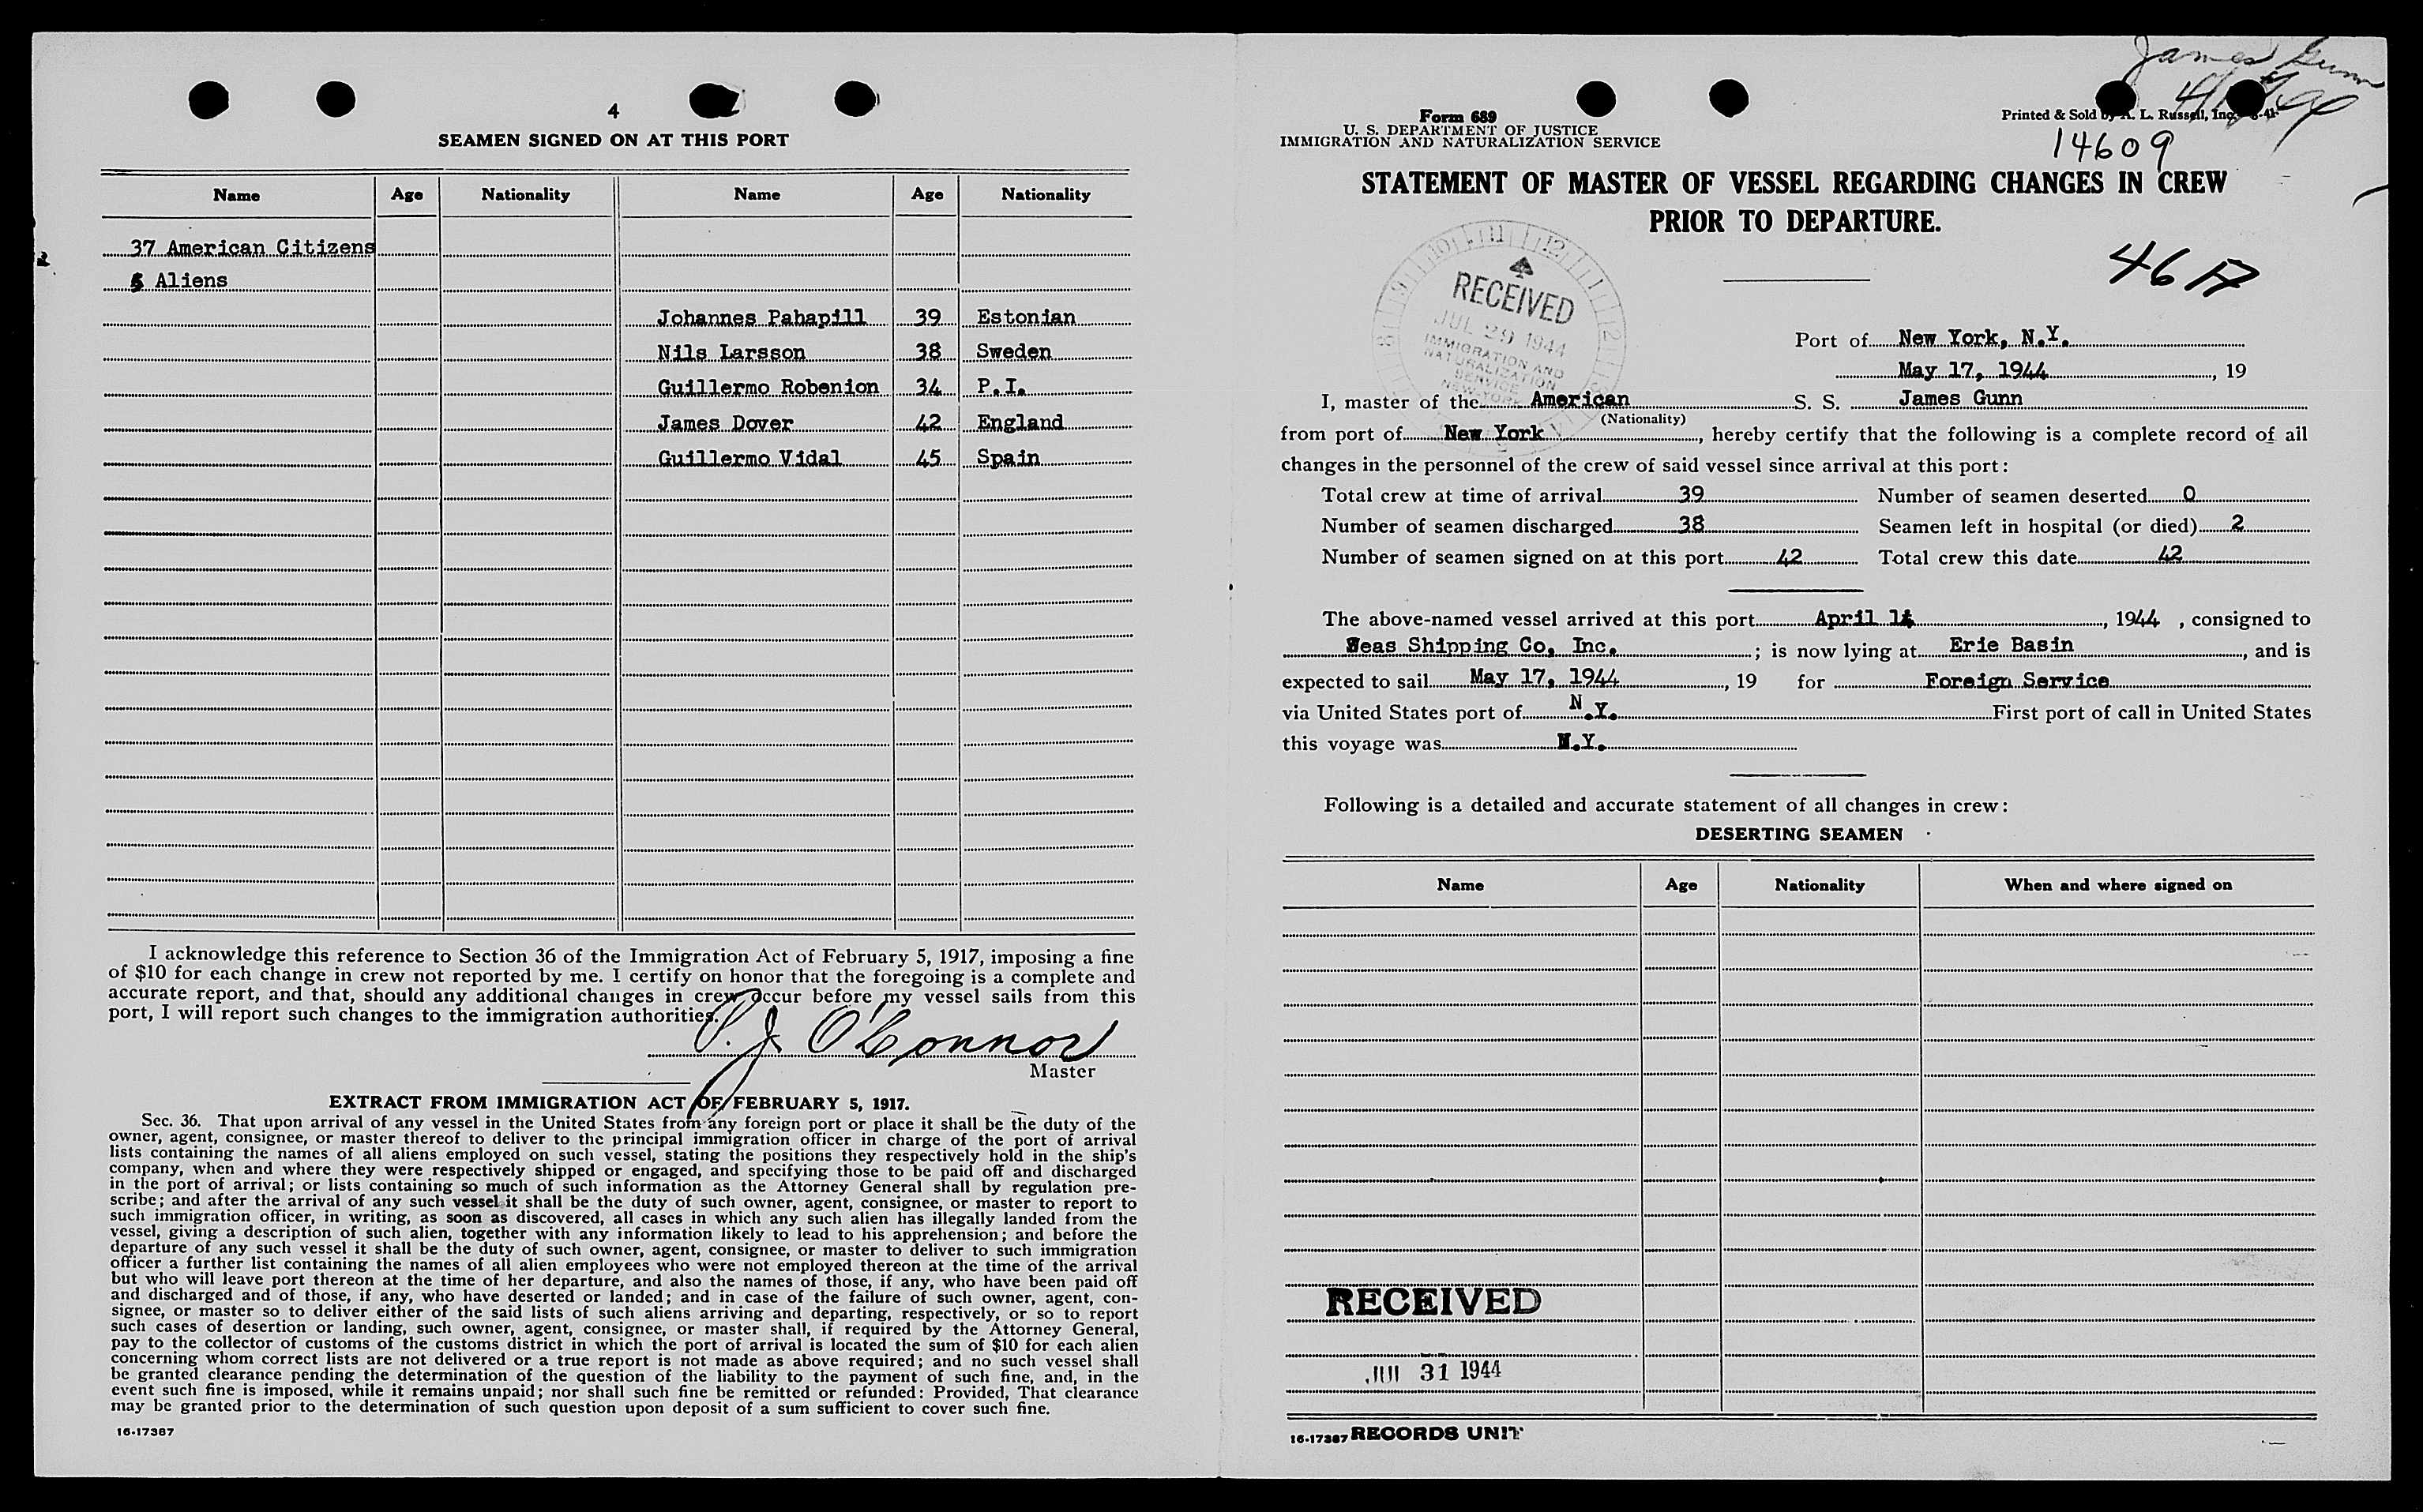 4
SEAMEN SIGNED ON AT THIS PORT
Name Age Nationality Name Age Nationality
37 American Citizens
5 Aliens
Johannes Pahapill 39 Estonian
Nils Larsson 38 Sweden
Guillermo Robenion 34 P.I.
James Dover 42 England
Guillermo Vidal 45 Spain
I acknowledge this reference to Section 36 of the Immigration Act of February 5, 1917, imposing a fine
of $10 for each change in crew not reported by me. I certify on honor that the foregoing is a complete and
accurate report, and that, should any additional changes in crew occur before my vessel sails from this
port, I will report such changes to the immigration authorities.
P. J. O'Connor
Master
EXTRACT FROM IMMIGRATION ACT OF FEBRUARY 5, 1917.
Sec. 36. That upon arrival of any vessel in the United States from any foreign port or place it shall be the duty of the
owner, agent, consignee, or master thereof to deliver to the principal immigration officer in charge of the port of arrival
lists containing the names of all aliens employed on such vessel, stating the positions they respectively hold in the ship's
company, when and where they were respectively shipped or engaged, and specifying those to be paid off and discharged
in the port of arrival; or lists containing so much of such information as the Attorney General shall by regulation pre-
scribe; and after the arrival of any such vessel it shall be the duty of such owner, agent, consignee, or master to report to
such immigration officer, in writing, as soon as discovered, all cases in which any such alien has illegally landed from the
vessel, giving a description of such alien, together with any information likely to lead to his apprehension; and before the
departure of any such vessel it shall be the duty of such owner, agent, consignee, or master to deliver to such immigration
officer a further list containing the names of all alien employees who were not employed thereon at the time of the arrival
but who will leave port thereon at the time of her departure, and also the names of those, if any, who have been paid off
and discharged and of those, if any, who have deserted or landed; and in case of the failure of such owner, agent, con-
signee, or master so to deliver either of the said lists of such aliens arriving and departing, respectively, or so to report
such cases of desertion or landing, such owner, agent, consignee, or master shall, if required by the Attorney General,
pay to the collector of customs of the customs district in which the port of arrival is located the sum of $10 for each alien
concerning whom correct lists are not delivered or a true report is not made as above required; and no such vessel shall
be granted clearance pending the determination of the question of the liability to the payment of such fine, and, in the
event such fine is imposed, while it remains unpaid; nor shall such fine be remitted or refunded: Provided, That clearance
may be granted prior to the determination of such question upon deposit of a sum sufficient to cover such fine.
16-17387
James Gunn
Form 689
U. S. DEPARTMENT OF JUSTICE
IMMIGRATION AND NATURALIZATION SERVICE
Printed & Sold by L. Russell, Inc.
14609
STATEMENT OF MASTER OF VESSEL REGARDING CHANGES IN CREW
PRIOR TO DEPARTURE.
RECEIVED
JUL 29 1944
IMMIGRATION AND
NATURALIZATION
SERVICE
NEW YORK
46 A
Port of New York, N.Y.
May 17, 1944, 19
I, master of the American S. S. James Gunn
(Nationality)
from port of New York, hereby certify that the following is a complete record of all
changes in the personnel of the crew of said vessel since arrival at this port:
Total crew at time of arrival 39 Number of seamen deserted 0
Number of seamen discharged 38 Seamen left in hospital (or died) 2
Number of seamen signed on at this port 42 Total crew this date 42
The above-named vessel arrived at this port April 14, 1944, consigned to
Seas Shipping Co, Inc.; is now lying at Erie Basin, and is
expected to sail May 17, 1944, 19 for Foreign Service
via United States port of N.Y. First port of call in United States
this voyage was N.Y.
Following is a detailed and accurate statement of all changes in crew:
DESERTING SEAMEN
Name Age Nationality When and where signed on
RECEIVED
JUL 31 1944
16-17387 RECORDS UNIT